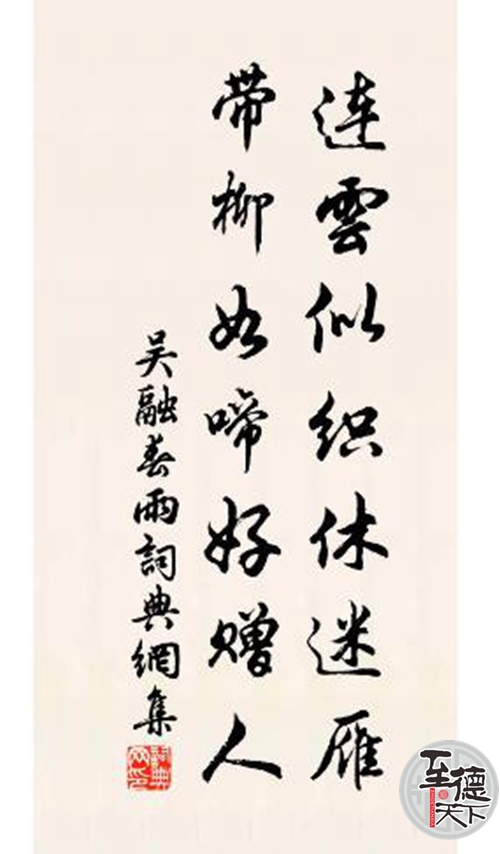 連雲似织休迷雁
带柳如啼好赠人
吴融春雨詞典網集
詞典网印
至德天下